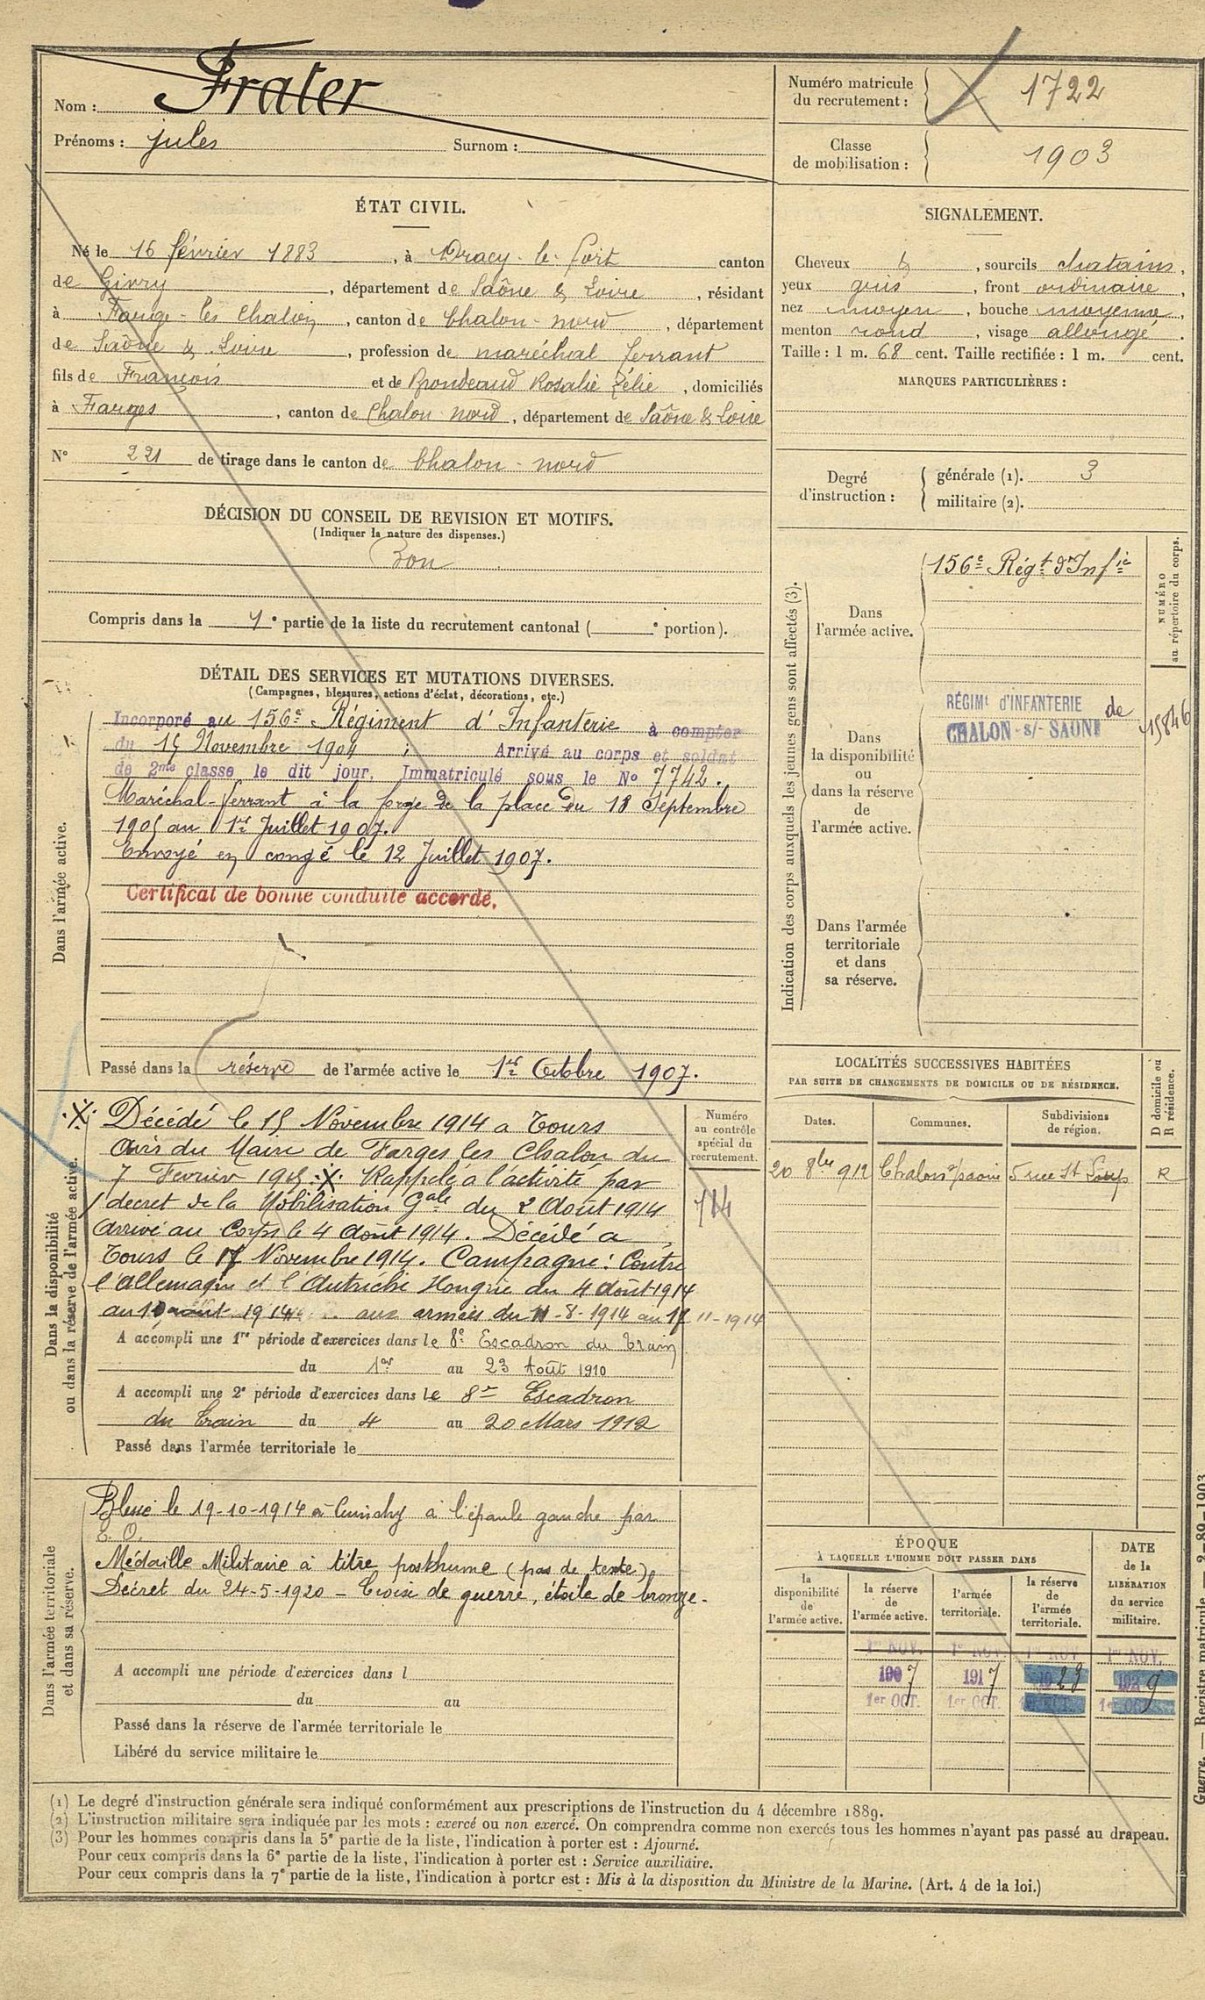 Nom : Frater
Prénoms : Jules Surnom :
Numéro matricule du recrutement : 1722
Classe de mobilisation : 1903
ÉTAT CIVIL.
Né le 16 février 1883, à Dracy-le-Fort canton
de Givry, département de Saône & Loire, résidant
à Farge-les Chalon, canton de Chalon-nord, département
de Saône & Loire, profession de maréchal ferrant
fils de François et de Brondeaud Rosalie Zélie, domiciliés
à Farges, canton de Chalon nord, département de Saône & Loire
N° 221 de tirage dans le canton de Chalon-nord
SIGNALEMENT.
Cheveux &, sourcils chatains,
yeux gris, front ordinaire,
nez moyen, bouche moyenne,
menton rond, visage allongé.
Taille : 1 m. 68 cent. Taille rectifiée : 1 m. cent.
MARQUES PARTICULIÈRES :
Degré d'instruction : générale (1). 3
militaire (2).
DÉCISION DU CONSEIL DE REVISION ET MOTIFS.
(Indiquer la nature des dispenses.)
Bon
Compris dans la 1e partie de la liste du recrutement cantonal ( e portion).
DÉTAIL DES SERVICES ET MUTATIONS DIVERSES.
(Campagnes, blessures, actions d'éclat, décorations, etc.)
Dans l'armée active.
Incorporé au 156e Régiment d'Infanterie à compter
du 15 Novembre 1904 ; Arrivé au corps et soldat
de 2me classe le dit jour. Immatriculé sous le No 7742.
Maréchal-ferrant à la forge de la place du 18 Septembre
1905 au 1er Juillet 1907.
Envoyé en congé le 12 Juillet 1907.
Certificat de bonne conduite accordé.
Passé dans la réserve de l'armée active le 1er Octobre 1907.
Indication des corps auxquels les jeunes gens sont affectés (3).
NUMÉRO au répertoire du corps.
Dans l'armée active.
156e Régt d'Infie
Dans la disponibilité ou dans la réserve de l'armée active.
RÉGIMt d'INFANTERIE de
CHALON-s/-SAONE
15846
Dans l'armée territoriale et dans sa réserve.
LOCALITÉS SUCCESSIVES HABITÉES
PAR SUITE DE CHANGEMENTS DE DOMICILE OU DE RÉSIDENCE.
Dates. Communes. Subdivisions de région. D domicile ou R résidence.
20 8bre 912 Chalon s/ Saone 5 rue St R
Dans la disponibilité ou dans la réserve de l'armée active.
Numéro au contrôle spécial du recrutement.
714
.X. Décédé le 15 Novembre 1914 a Tours
Avis du Maire de Farges les Chalon du
7 Fevrier 1915 .X. Rappelé à l'activité par
decret de la Mobilisation Gale du 2 Août 1914
Arrivé au Corps le 4 Août 1914. Décédé a
Tours le 15 Novembre 1914. Campagne : Contre
l'Allemagne et l'Autriche Hongrie du 4 Août 1914
au 10 aout 1914 aux armées du 11-8-1914 au 15 11-1914
A accompli une 1re période d'exercices dans le 8e Escadron du Train
du 1er au 23 Août 1910
A accompli une 2e période d'exercices dans le 8e Escadron
du Train du 4 au 20 Mars 1912
Passé dans l'armée territoriale le
Dans l'armée territoriale et dans sa réserve.
Blessé le 19-10-1914 à Cuinchy à l'épaule gauche par
E. O.
Médaille Militaire à titre posthume (pas de texte)
Décret du 24-5-1920 - Croix de guerre, étoile de bronze.
A accompli une période d'exercices dans l
du au
Passé dans la réserve de l'armée territoriale le
Libéré du service militaire le
ÉPOQUE
À LAQUELLE L'HOMME DOIT PASSER DANS
la disponibilité de l'armée active.
la réserve de l'armée active.
l'armée territoriale.
la réserve de l'armée territoriale.
DATE de la LIBÉRATION du service militaire.
1er NOV. 1er NOV. 1er NOV. 1er NOV.
1907 1917 1923 1929
1er OCT. 1er OCT. 1er OCT. 1er OCT.
(1) Le degré d'instruction générale sera indiqué conformément aux prescriptions de l'instruction du 4 décembre 1889.
(2) L'instruction militaire sera indiquée par les mots : exercé ou non exercé. On comprendra comme non exercés tous les hommes n'ayant pas passé au drapeau.
(3) Pour les hommes compris dans la 5e partie de la liste, l'indication à porter est : Ajourné.
Pour ceux compris dans la 6e partie de la liste, l'indication à porter est : Service auxiliaire.
Pour ceux compris dans la 7e partie de la liste, l'indication à porter est : Mis à la disposition du Ministre de la Marine. (Art. 4 de la loi.)
Guerre. — Registre matricule. — 2-89-1903